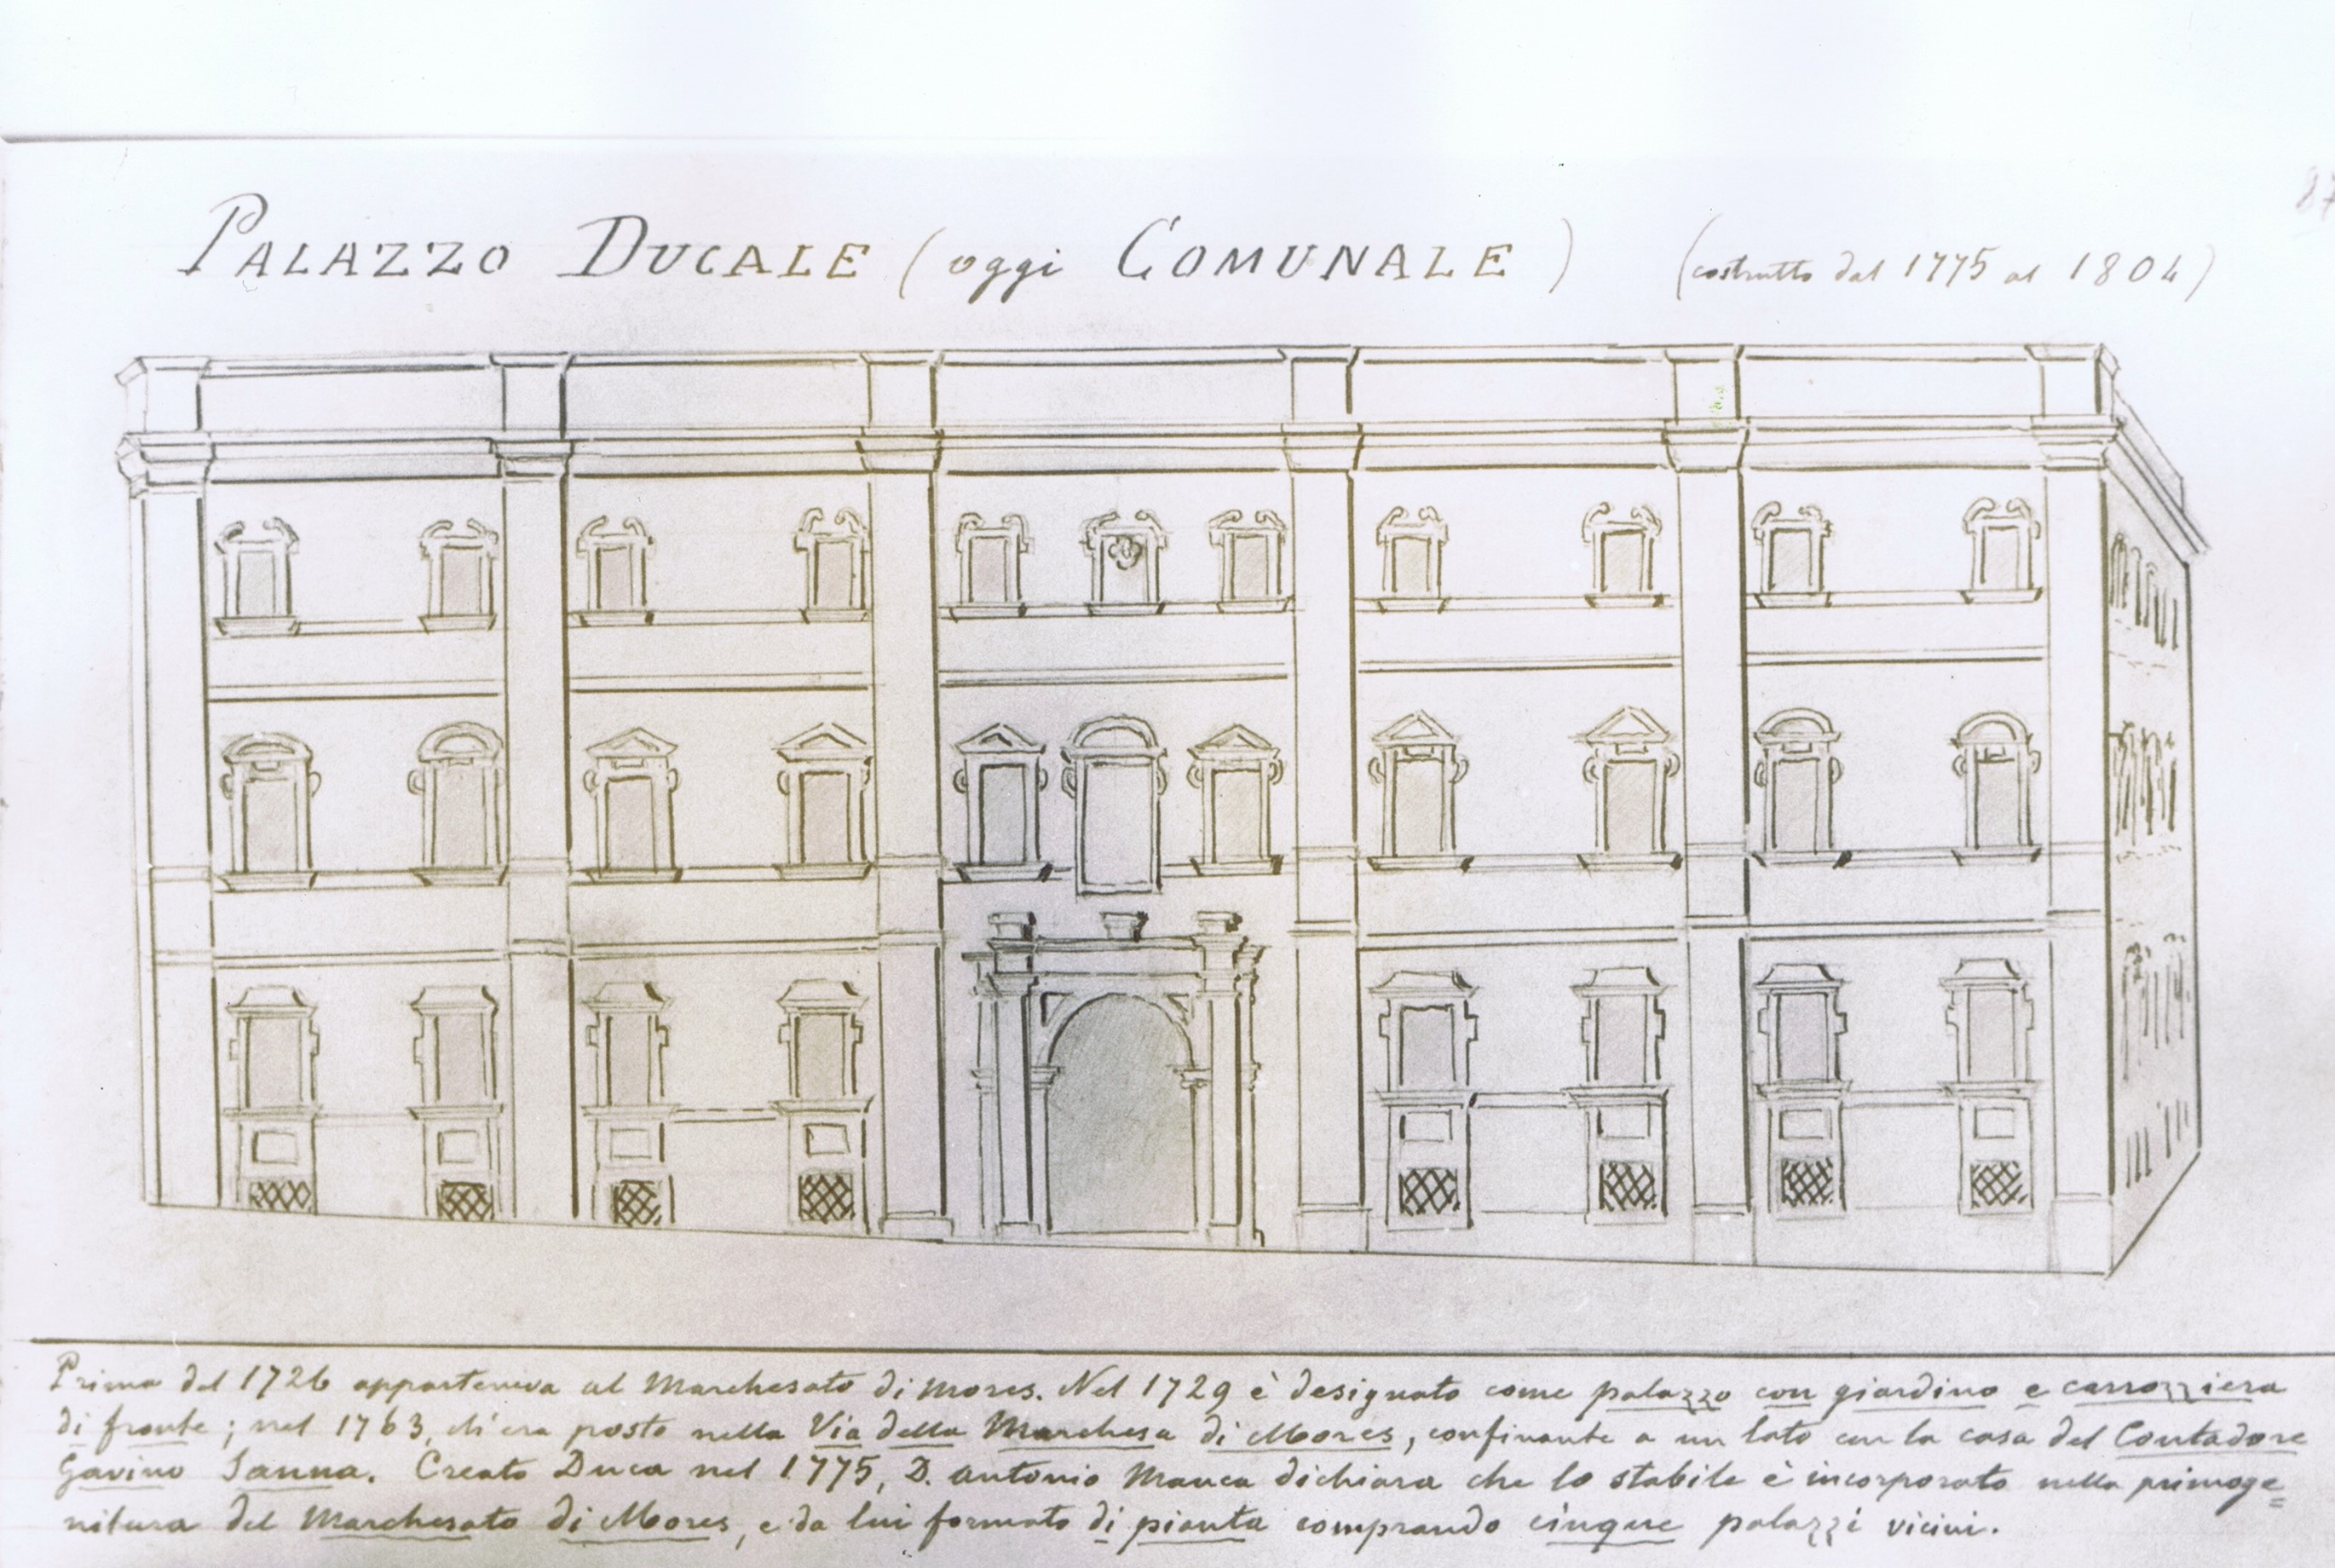 87
PALAZZO DUCALE (oggi COMUNALE) (costrutto dal 1775 al 1804)
Prima del 1726 apparteneva al Marchesato di Mores. Nel 1729 è designato come palazzo con giardino e carrozziera
di fronte; nel 1763, ch'era posto nella Via della Marchesa di Mores, confinante a un lato con la casa del Contadore
Gavino Sanna. Creato Duca nel 1775, D. Antonio Manca dichiara che lo stabile è incorporato nella primoge=
nitura del Marchesato di Mores, e da lui formato di pianta comprando cinque palazzi vicini.